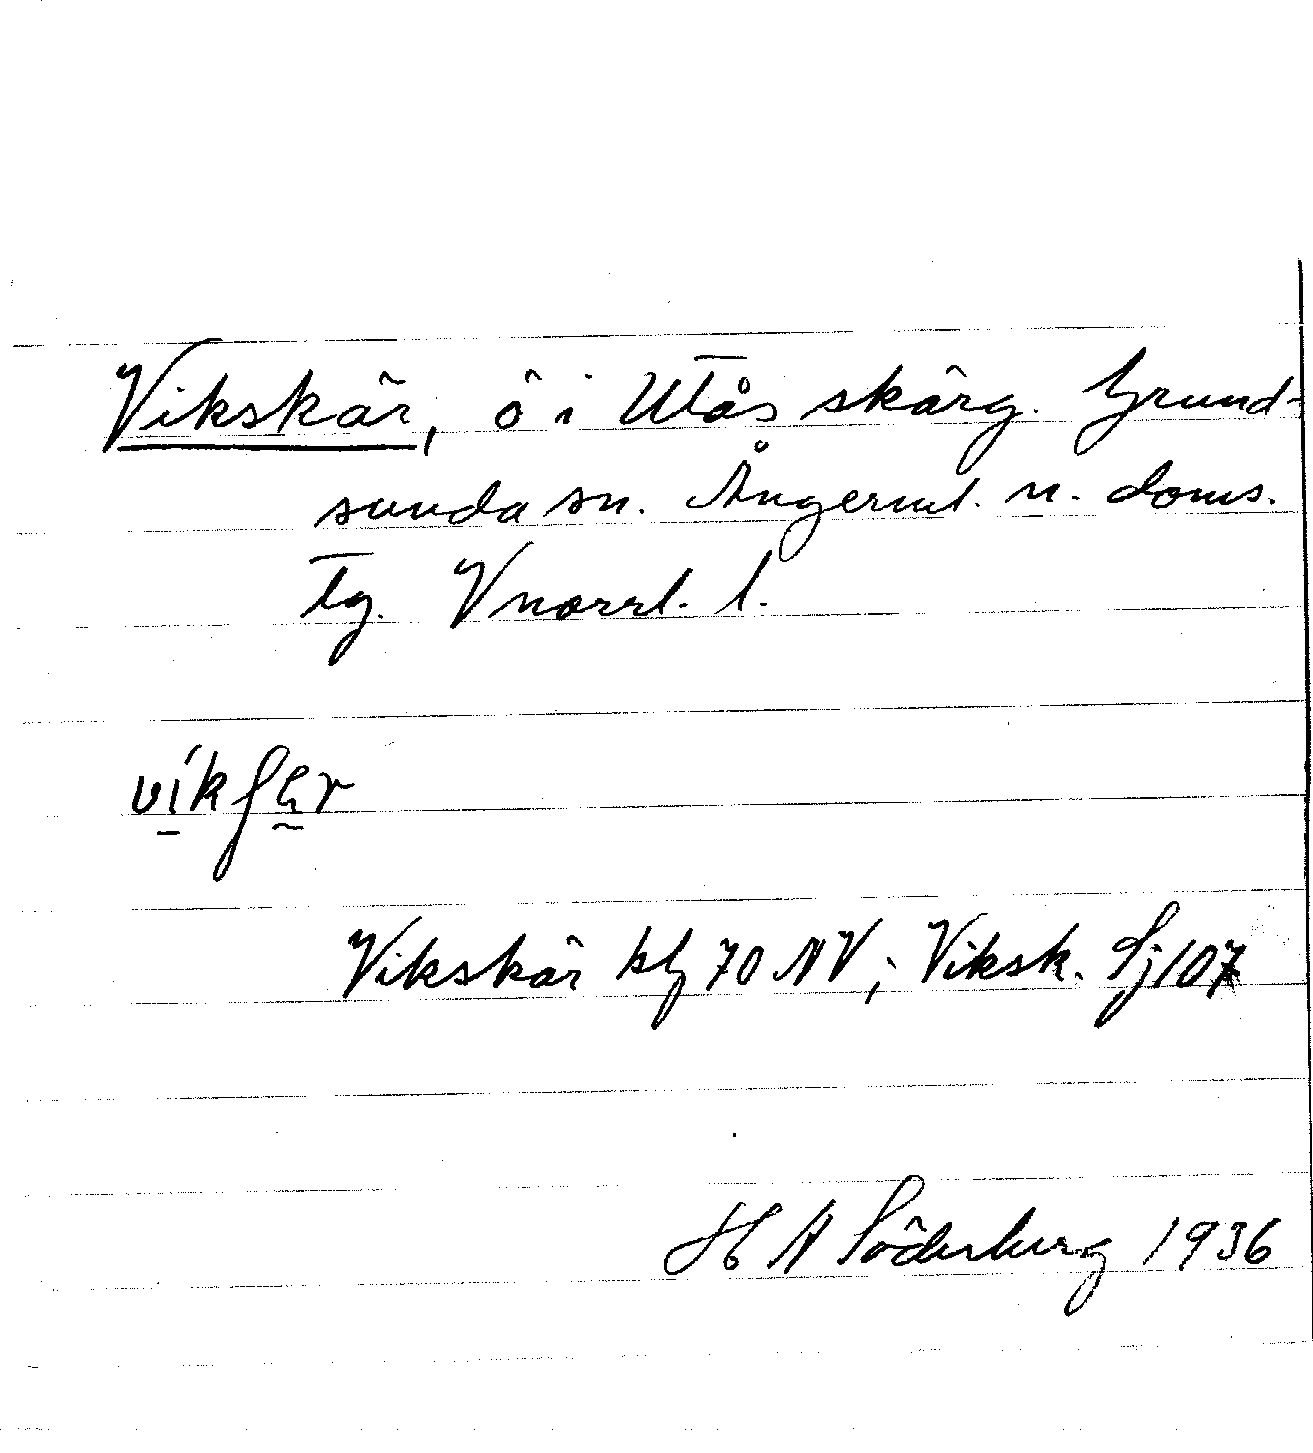 Vikskär, ö i Utås skärg. Grund-
sunda sn. Ångerml. n. doms.
tg. Vnorrl. l.
Vikskär kbl 70 NV; Viksk. Sj 107
H A Söderberg 1936